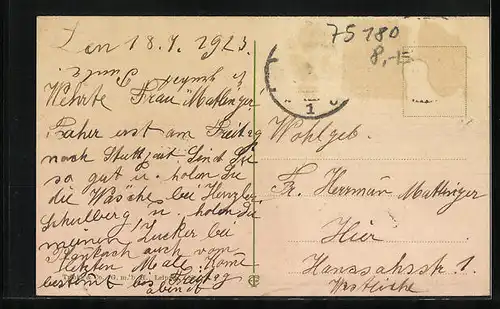 75180
8,-
Den 18.4. 1923.
Wehrte Frau Mattinger
Fahre erst am Freitag
nach Stuttgart Sind Sie
so gut u. holen Sie
die Wäsche bei Henzler
Schulberg u. holen Sie
meinen Zucker bei
auch vom
letzten Mall. Kome
bestimt bis Freitag
abend
Wohlgeb.
Fr. Herrman Mattinger
Hier
Hanssachsstr. 1.
Westliche
1